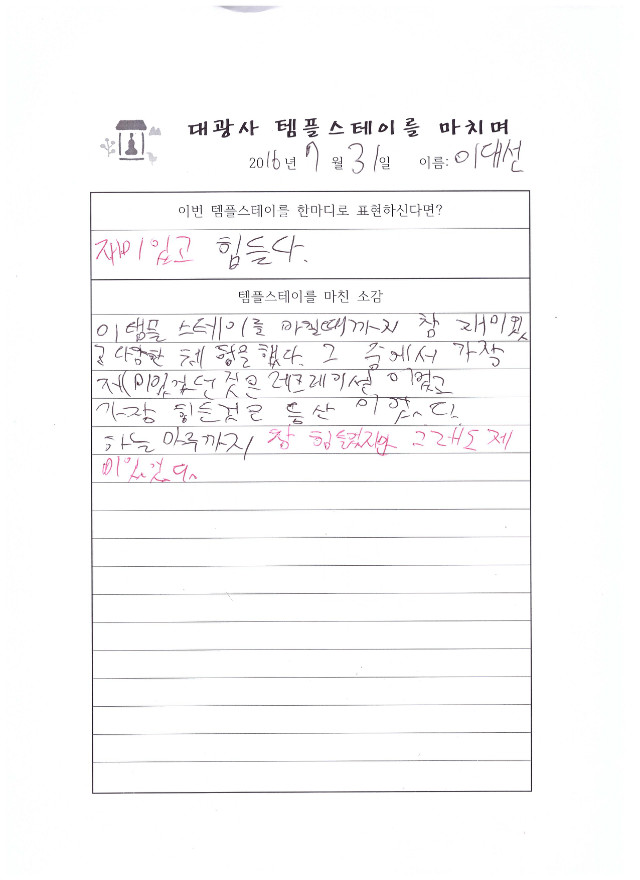 대광사 템플스테이를 마치며
2016년 7월 31일 이름: 이대선
이번 템플스테이를 한마디로 표현하신다면?
재미있고 힘들다.
템플스테이를 마친 소감
이 탬플 스테이를 마칠때까지 참 재미있
고 다양한 체험을 했다. 그 중에서 가장
재미있었던 것은 레크레이션 이었고
가장 힘든것은 등산 이었다.
하늘 마루까지 참 힘들었지만 그래도 제
미있었다.